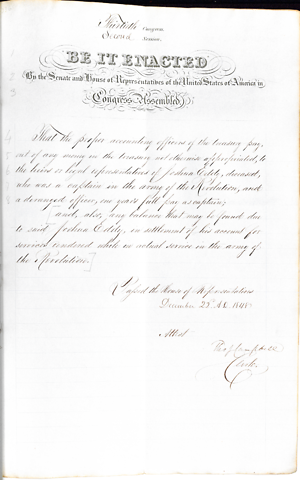 Thirtieth Congress
Second Session
BE IT ENACTED
By the Senate and House of Representatives of the United States of America in
Congress Assembled
That the proper accounting officers of the treasury pay,
out of any money in the treasury not otherwise appropriated, to
the heirs or legal representatives of Joshua Eddy, deceased,
who was a captain in the army of the Revolution, and
a deranged officer, one years full pay as captain;
[and, also, any balance that may be found due
to said Joshua Eddy, on settlement of his account for
services rendered while in actual service in the army of
the Revolution.]
Passed the House of Representatives
December 1848
Attest
Campbell
Clerk.